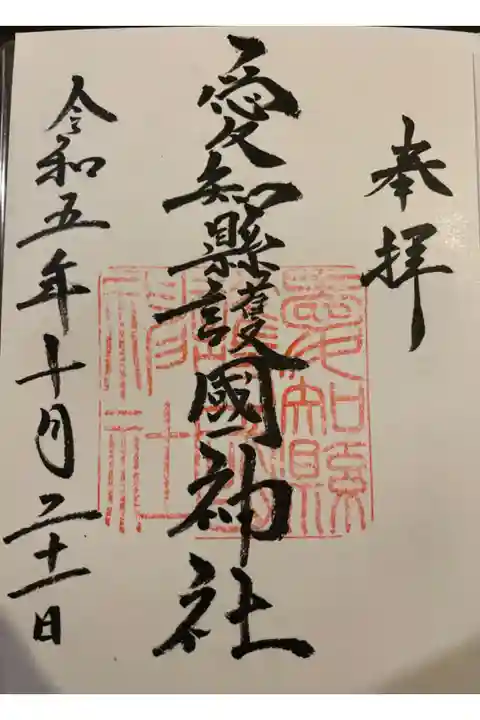 奉拝
愛知縣護國神社
愛知縣
護國
神社
令和五年十月二十一日